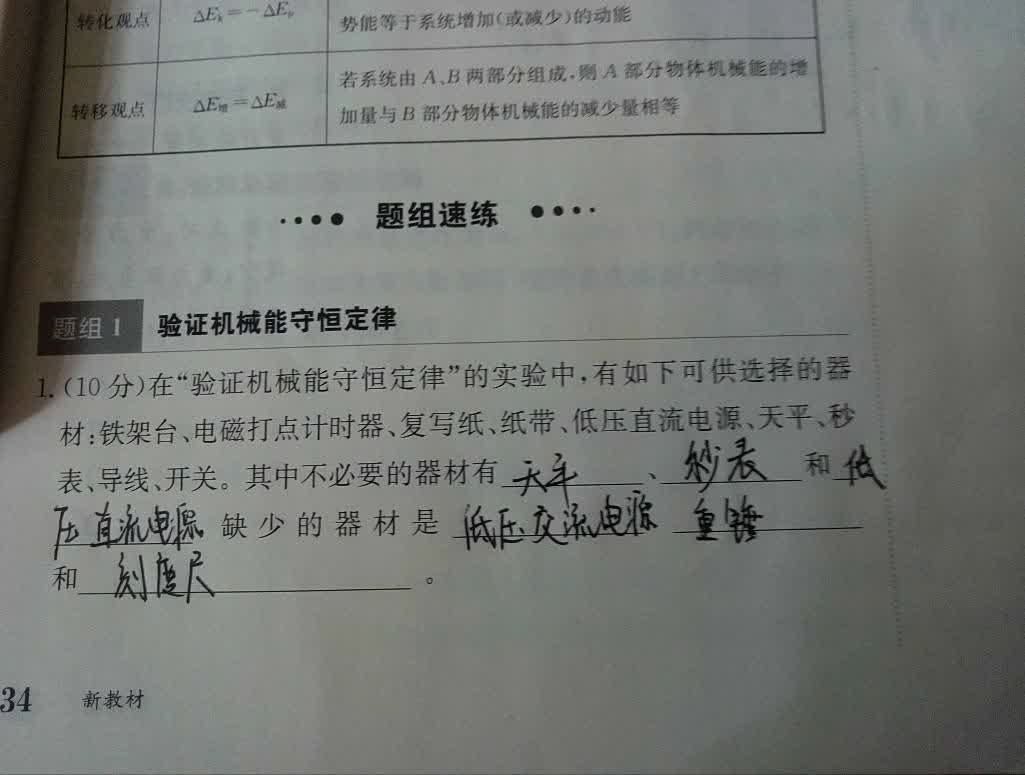 转化观点 ΔEₖ=-ΔEₚ 势能等于系统增加(或减少)的动能
转移观点 ΔE增=ΔE减 若系统由A、B两部分组成,则A部分物体机械能的增
加量与B部分物体机械能的减少量相等
题组速练
题组1 验证机械能守恒定律
1.(10分)在“验证机械能守恒定律”的实验中,有如下可供选择的器
材:铁架台、电磁打点计时器、复写纸、纸带、低压直流电源、天平、秒
表、导线、开关。其中不必要的器材有 天平 、 秒表 和 低
压直流电源 缺少的器材是 低压交流电源 重锤
和 刻度尺 。
34 新教材